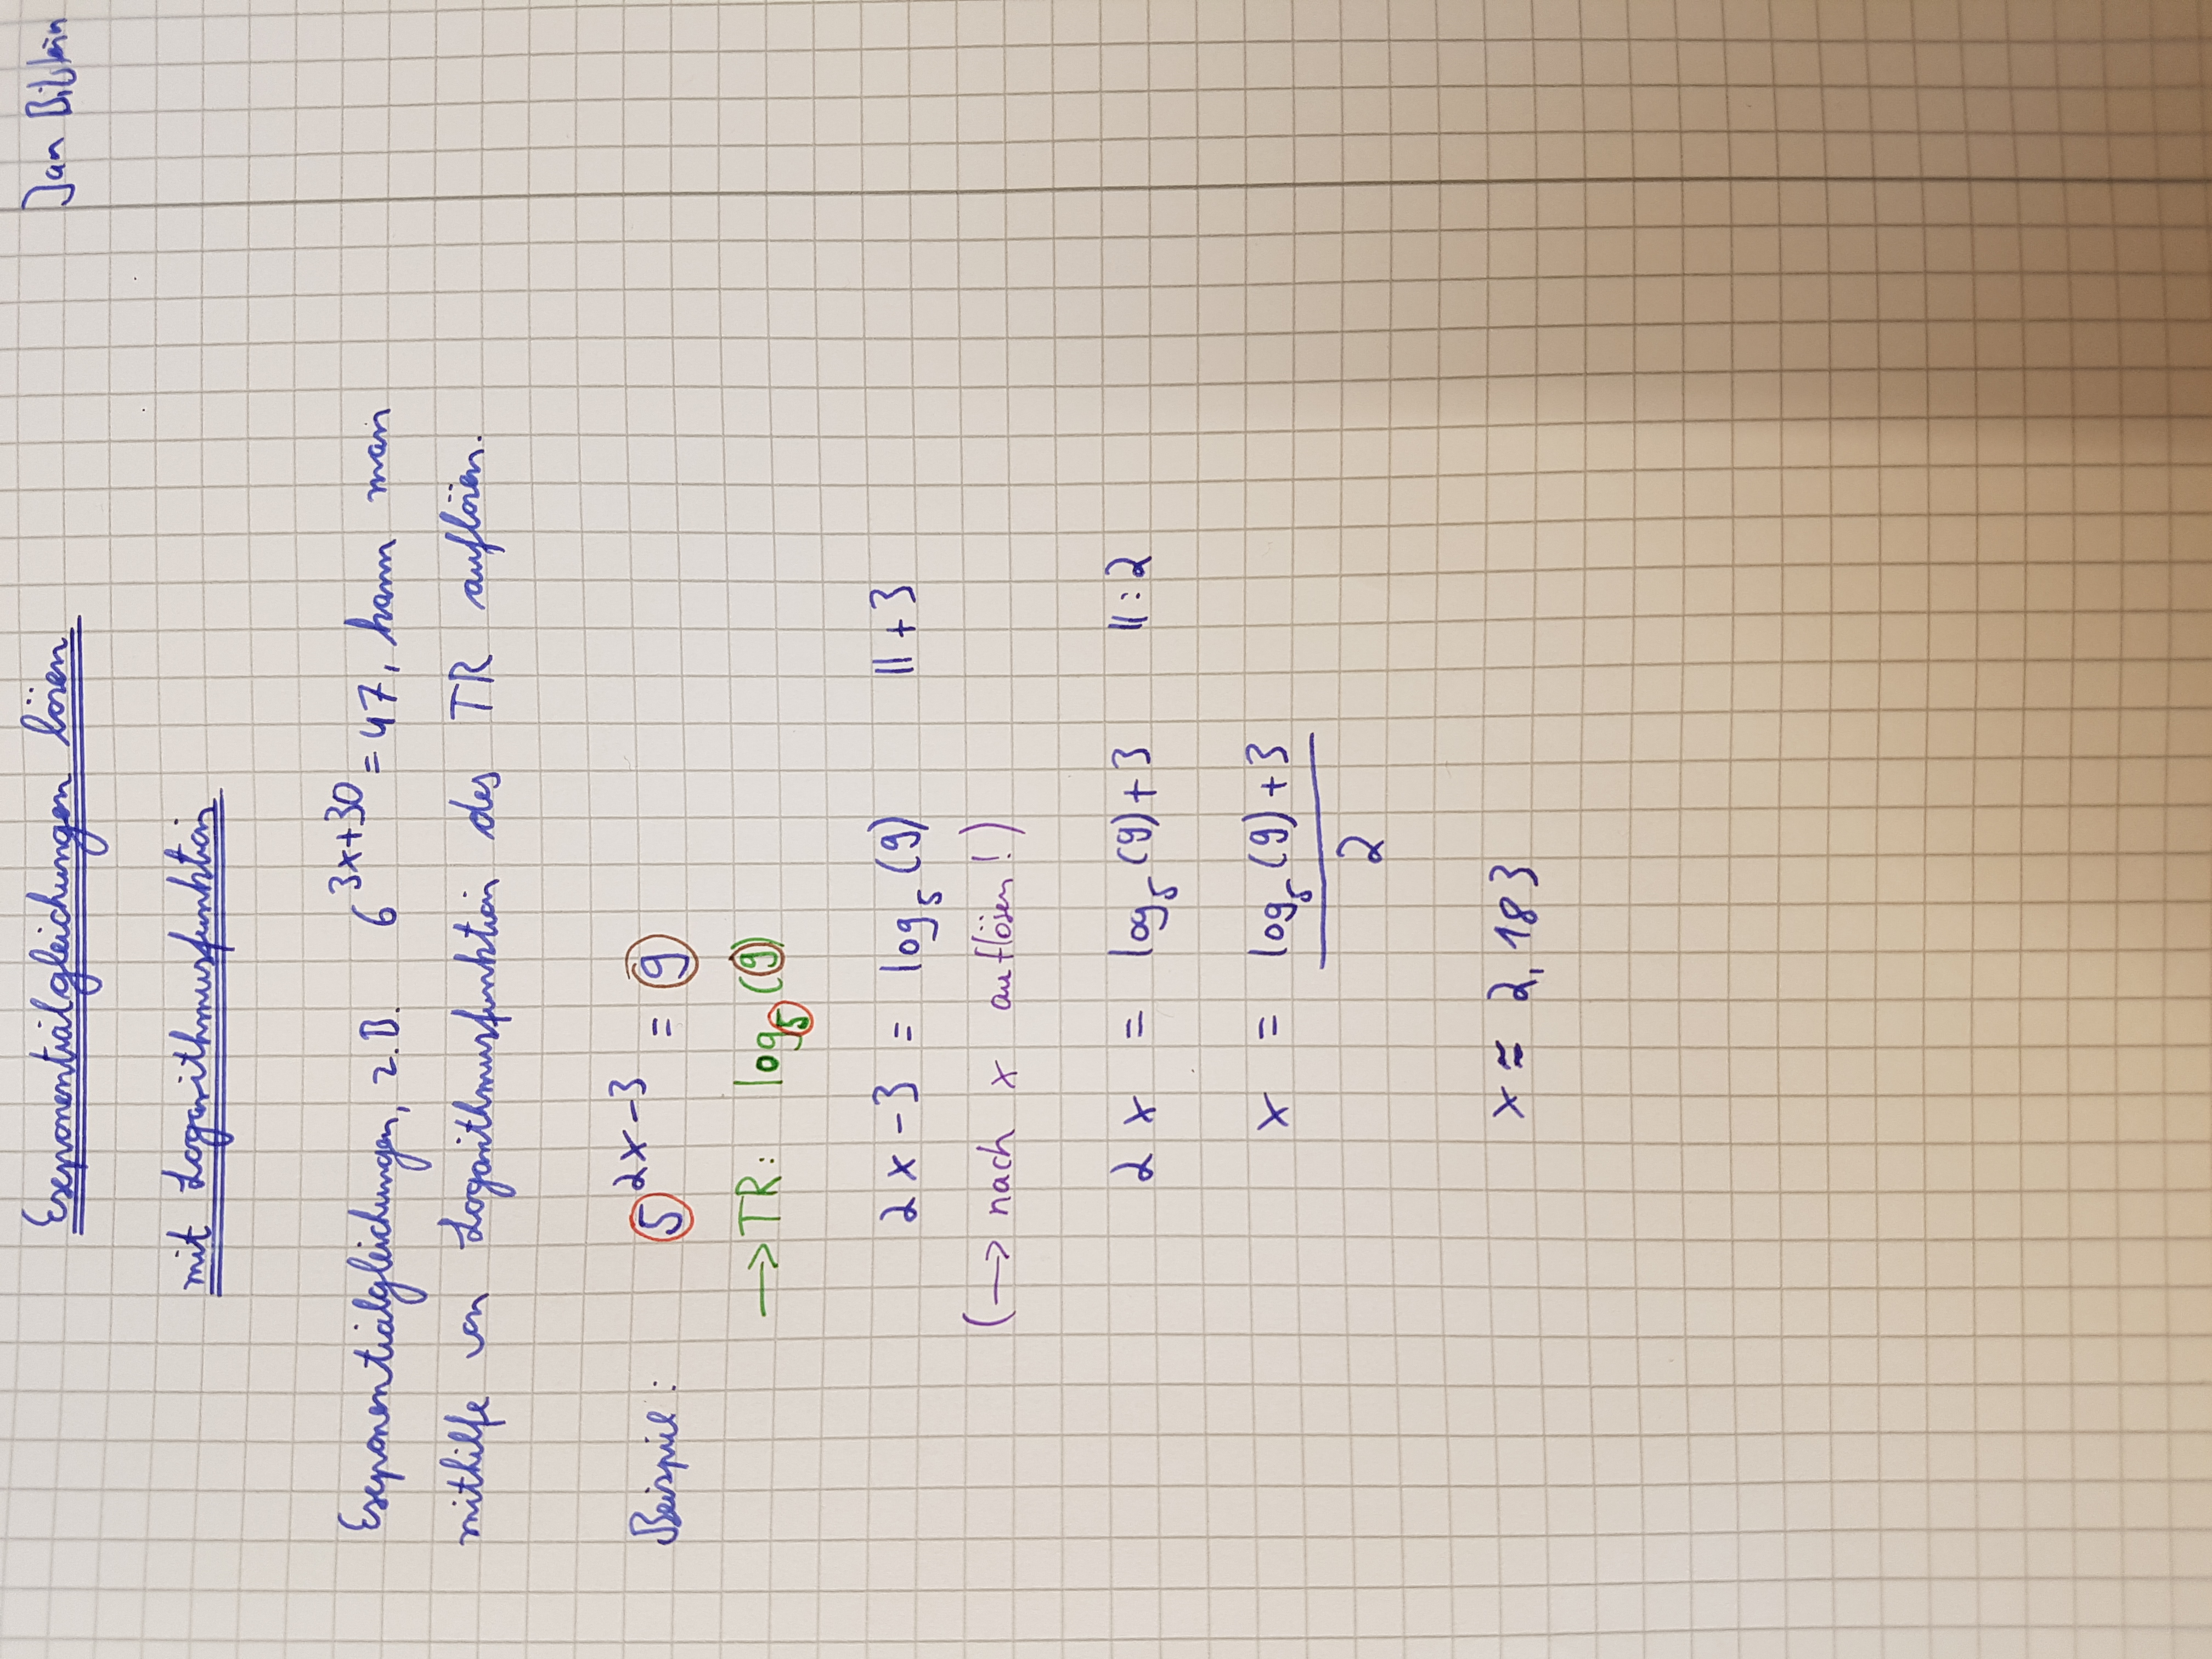 Jan
Exponentialgleichungen lösen
mit Logarithmusfunktion
Exponentialgleichungen, z.B. 6^3x+30 = 47, kann man
mithilfe von Logarithmusfunktion des TR auflösen.
Beispiel: 5^2x-3 = 9
→TR: log₅(9)
2x-3 = log₅(9) || +3
(→ nach x auflösen!)
2x = log₅(9)+3 || :2
x = log₅(9)+3
2
x ≈ 2,183